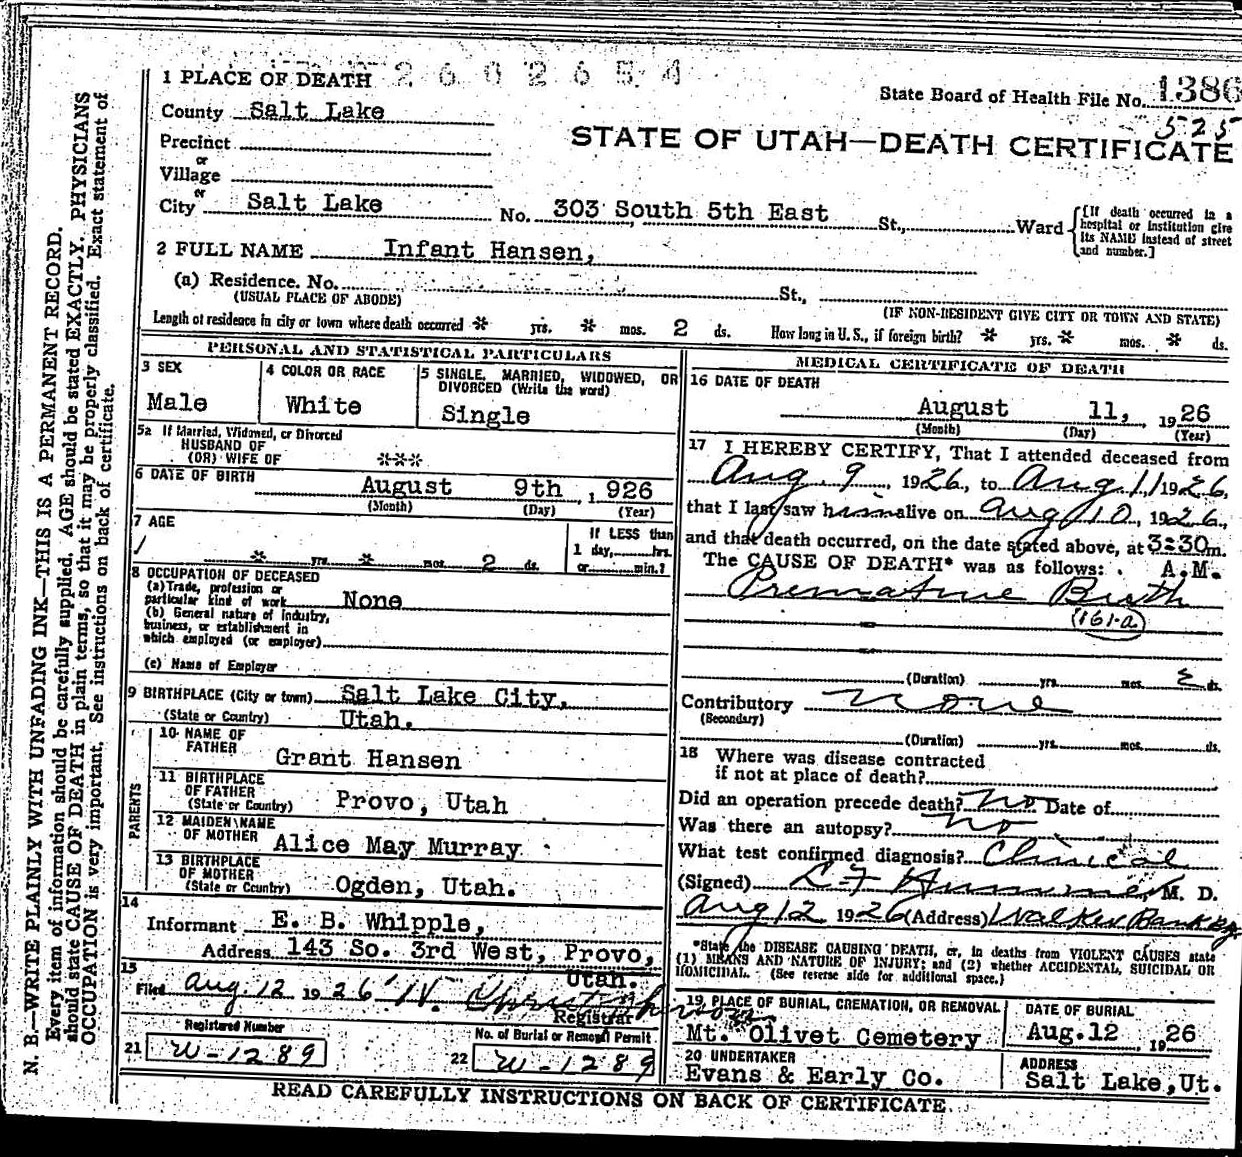 2602654
State Board of Health File No. 1386
525
STATE OF UTAH—DEATH CERTIFICATE
1 PLACE OF DEATH
County Salt Lake
Precinct
or
Village
or
City Salt Lake No. 303 South 5th East St., Ward {[If death occurred in a hospital or institution give its NAME instead of street and number.]
2 FULL NAME Infant Hansen,
(a) Residence. No. St.,
(USUAL PLACE OF ABODE) (IF NON-RESIDENT GIVE CITY OR TOWN AND STATE)
Length of residence in city or town where death occurred * yrs. * mos. 2 ds. How long in U. S., if foreign birth? * yrs. * mos. * ds.
PERSONAL AND STATISTICAL PARTICULARS
3 SEX
Male
4 COLOR OR RACE
White
5 SINGLE, MARRIED, WIDOWED, OR
DIVORCED (Write the word)
Single
5a If Married, Widowed, or Divorced
HUSBAND OF
(OR) WIFE OF ***
6 DATE OF BIRTH August 9th, 1926
(Month) (Day) (Year)
7 AGE
* yrs. * mos. 2 ds.
If LESS than
1 day, hrs.
or min.?
8 OCCUPATION OF DECEASED
(a) Trade, profession or
particular kind of work None
(b) General nature of industry,
business, or establishment in
which employed (or employer)
(c) Name of Employer
9 BIRTHPLACE (City or town) Salt Lake City,
(State or Country) Utah.
PARENTS
10 NAME OF
FATHER Grant Hansen
11 BIRTHPLACE
OF FATHER
(State or Country) Provo, Utah
12 MAIDEN NAME
OF MOTHER Alice May Murray
13 BIRTHPLACE
OF MOTHER
(State or Country) Ogden, Utah.
14
Informant E. B. Whipple,
Address 143 So. 3rd West, Provo,
Utah.
15
Filed Aug. 12 1926
Registrar
Registered Number
21 W-1289
No. of Burial or Removal Permit
22 W-1289
MEDICAL CERTIFICATE OF DEATH
16 DATE OF DEATH
August 11, 1926
(Month) (Day) (Year)
17 I HEREBY CERTIFY, That I attended deceased from
Aug. 9, 1926, to Aug 11 1926,
that I last saw him alive on Aug 10, 1926,
and that death occurred, on the date stated above, at 3:30m.
The CAUSE OF DEATH* was as follows: A.M.
Premature Birth
(161-a)
(Duration) yrs. mos. ds.
Contributory None
(Secondary)
(Duration) yrs. mos. ds.
18 Where was disease contracted
if not at place of death?
Did an operation precede death? No Date of
Was there an autopsy? No
What test confirmed diagnosis? Clinical
(Signed) M. D.
Aug 12 1926 (Address) Walker Bank Bg.
*State the DISEASE CAUSING DEATH, or, in deaths from VIOLENT CAUSES state
(1) MEANS AND NATURE OF INJURY; and (2) whether ACCIDENTAL, SUICIDAL OR
HOMICIDAL. (See reverse side for additional space.)
19 PLACE OF BURIAL, CREMATION, OR REMOVAL
Mt. Olivet Cemetery
DATE OF BURIAL
Aug.12 1926
20 UNDERTAKER
Evans & Early Co.
ADDRESS
Salt Lake,Ut.
READ CAREFULLY INSTRUCTIONS ON BACK OF CERTIFICATE.
N. B.—WRITE PLAINLY WITH UNFADING INK—THIS IS A PERMANENT RECORD.
Every item of information should be carefully supplied. AGE should be stated EXACTLY. PHYSICIANS
should state CAUSE OF DEATH in plain terms, so that it may be properly classified. Exact statement of
OCCUPATION is very important. See instructions on back of certificate.